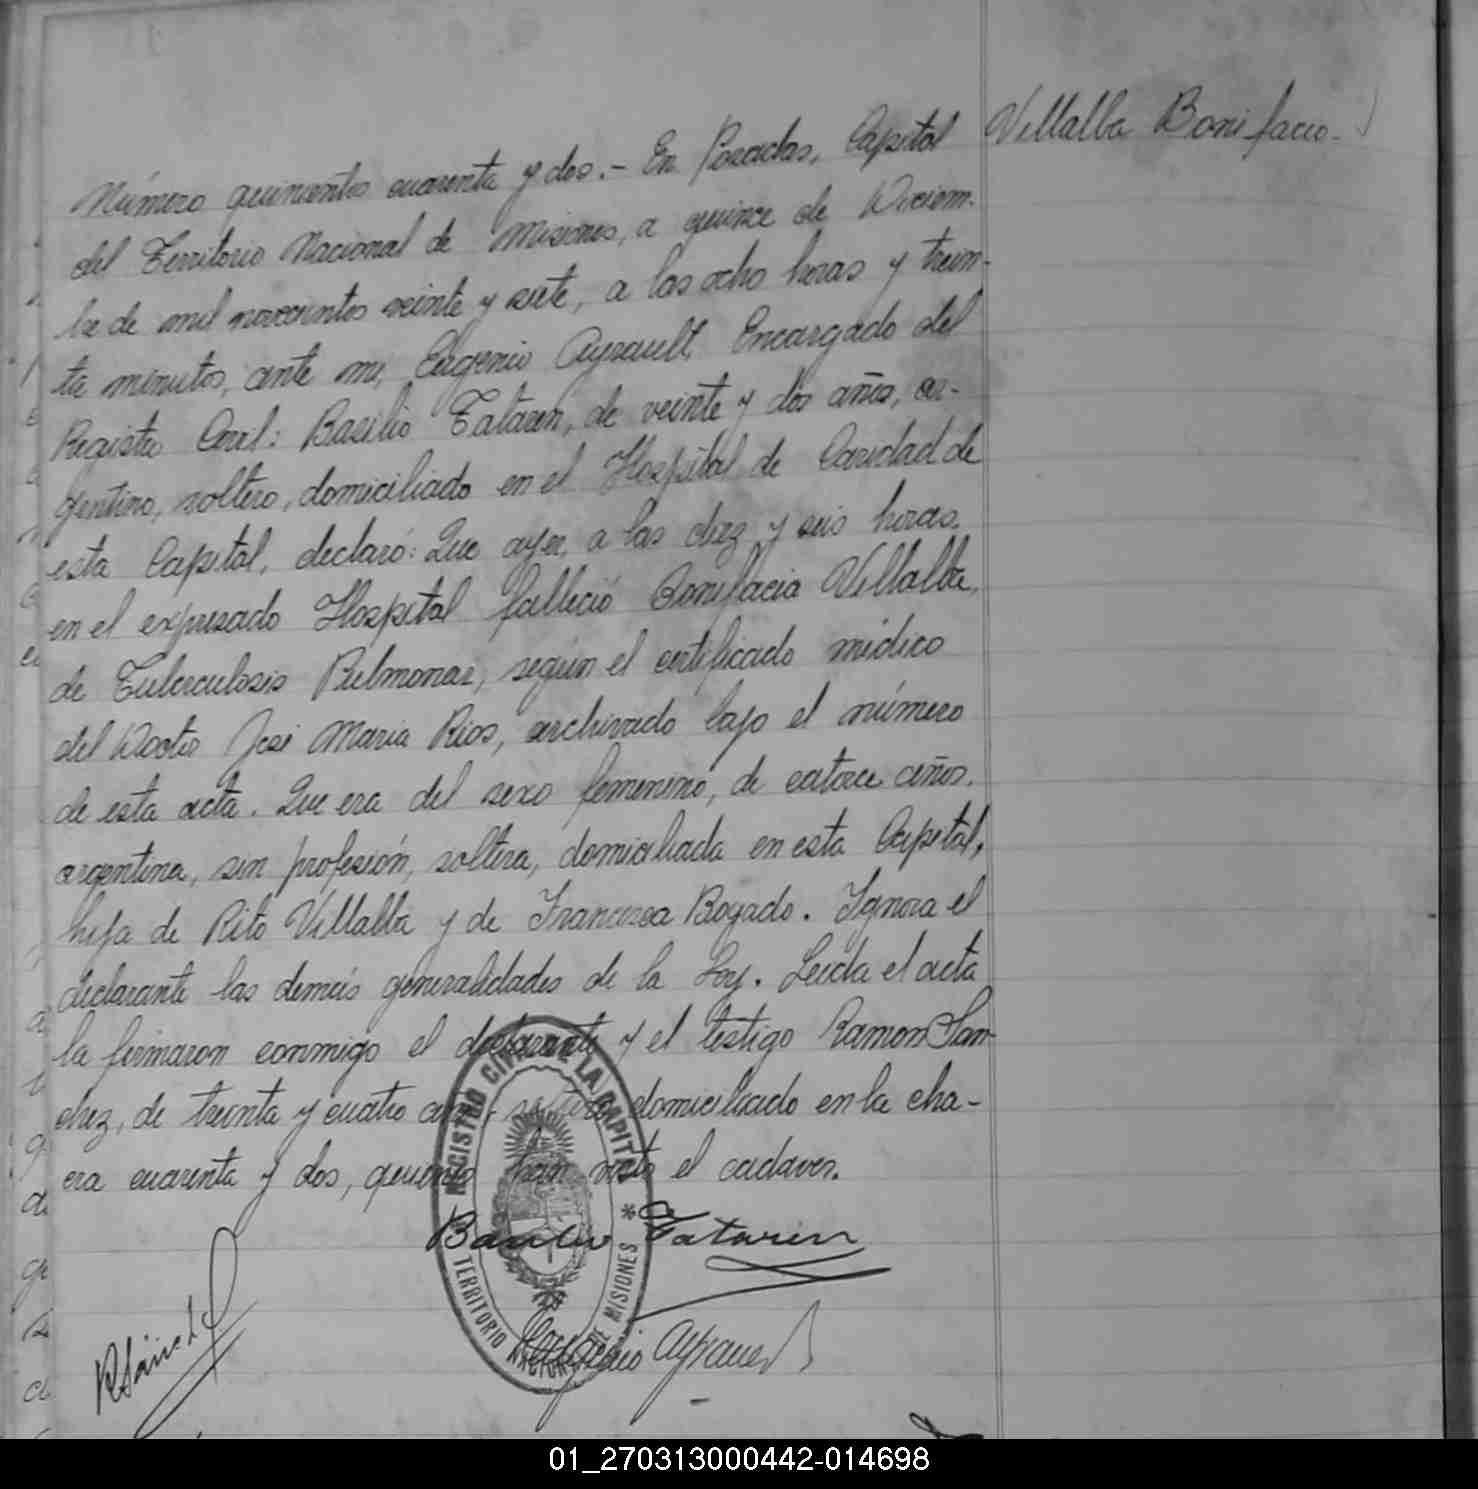 Villalba Bonifacio.
Número quinientos cuarenta y dos.- En Posadas, Capital
del Territorio Nacional de Misiones, a quince de Diciem-
bre de mil novecientos veinte y siete, a las ocho horas y trein-
ta minutos, ante mi, Eugenio Ayrault, Encargado del
Registro Civil: Basilio Tataren, de veinte y dos años, ar-
gentino, soltero, domiciliado en el Hospital de Caridad de
esta Capital, declaró: Que ayer, a las diez y seis horas,
en el expresado Hospital falleció Bonifacia Villalba,
de Tuberculosis Pulmonar, según el certificado médico
del Doctor José Maria Rios, archivado bajo el número
de esta acta. Que era del sexo femenino, de catorce años,
argentina, sin profesión, soltera, domiciliada en esta Capital,
hija de Rito Villalba y de Francisca Bogado. Ignora el
declarante las demás generalidades de la Ley. Leída el acta
la firmaron conmigo el declarante y el testigo Ramon San
chez, de treinta y cuatro años, soltero, domiciliado en la cha-
cra cuarenta y dos, quienes han visto el cadaver.
REGISTRO CIVIL DE LA CAPITAL
* TERRITORIO NACIONAL DE MISIONES *
Basilio Tataren
RSánchez
Eugenio Ayrault
01_270313000442-014698